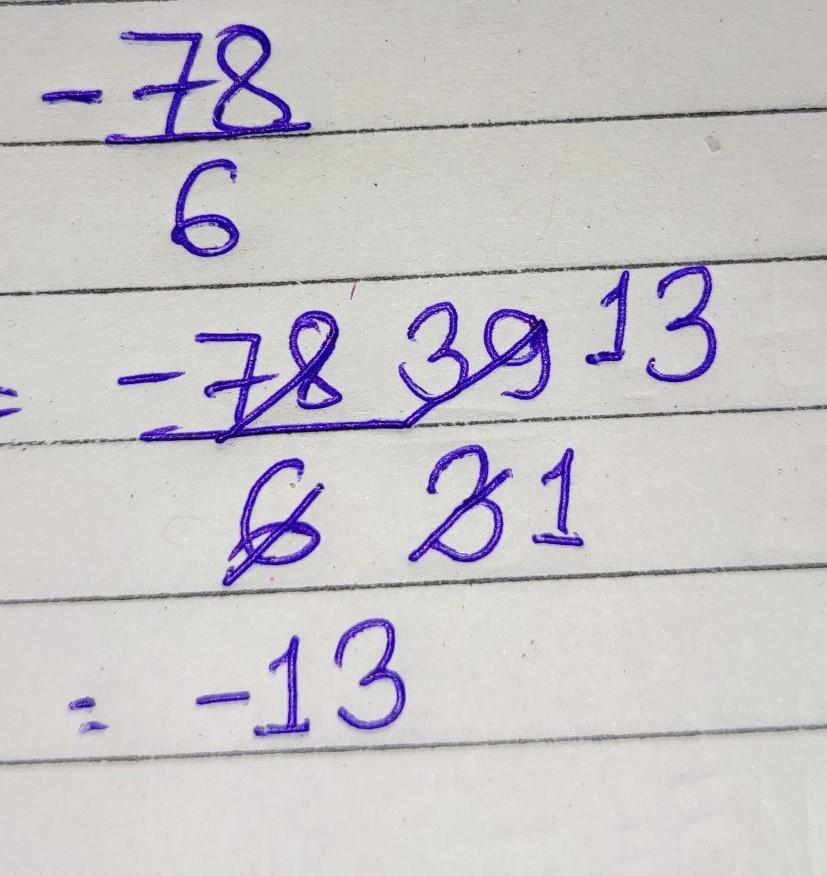 -78
6
= -78 39 13
6 3 1
= -13